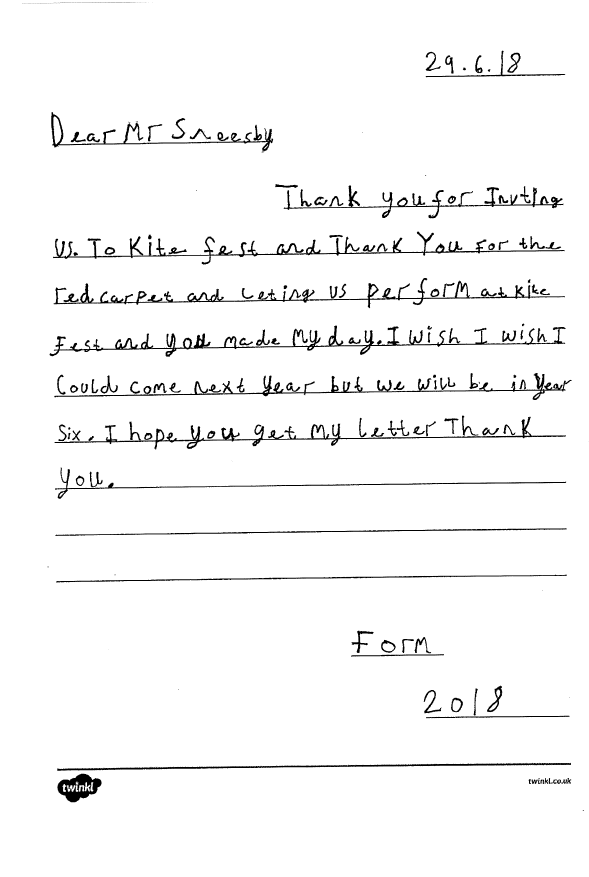 29.6.18
Dear Mr Sneesby
Thank you for Invting
us. To Kite fest and Thank You For the
red carpet and Leting us perform at Kite
Fest and you made My day. I wish I wish I
Could come next year but we will be in Year
Six. I hope you get My letter Thank
you.
Form
2018
twinkl
twinkl.co.uk